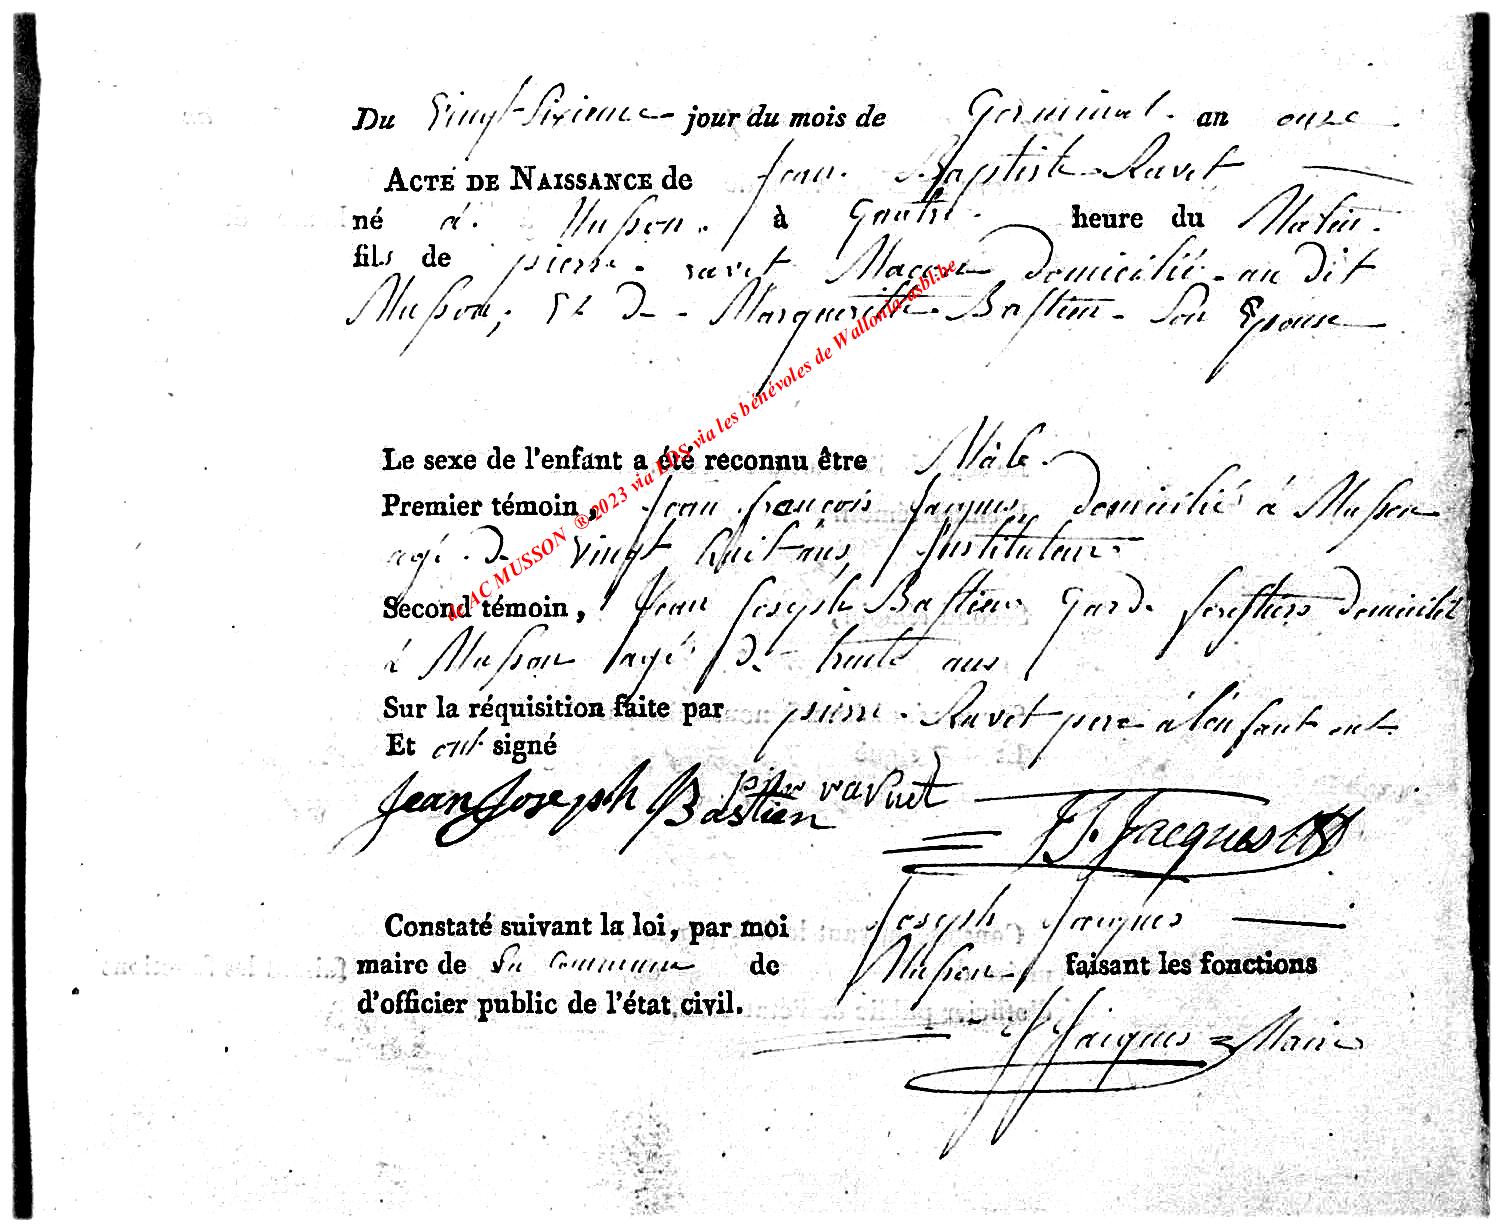 Du vingt sixieme jour du mois de Germinal an onze
ACTE DE NAISSANCE de Jean Baptiste Ravet
né à Musson à Quatre heure du Matin
fils de pierre ravet Maçon domicilié au dit
Musson, Et de Marguerite Bastien Son Epouse
Le sexe de l'enfant a été reconnu être Mâle
Premier témoin, Jean françois Jacques, domicilié à Musson
agé de vingt huit ans, Instituteur
Second témoin, Jean Joseph Bastien Garde forestiers domicilié
à Musson agé de trente ans
Sur la réquisition faite par pierre Ravet pere à l'enfant
Et ont signé
Jean Joseph Bastien
J.f. Jacques
Constaté suivant la loi, par moi Joseph Jacques
maire de la commune de Musson faisant les fonctions
d'officier public de l'état civil.
Jacques Maire
AC MUSSON ® 2023 via LDS via les bénévoles de Wallonia-asbl.be